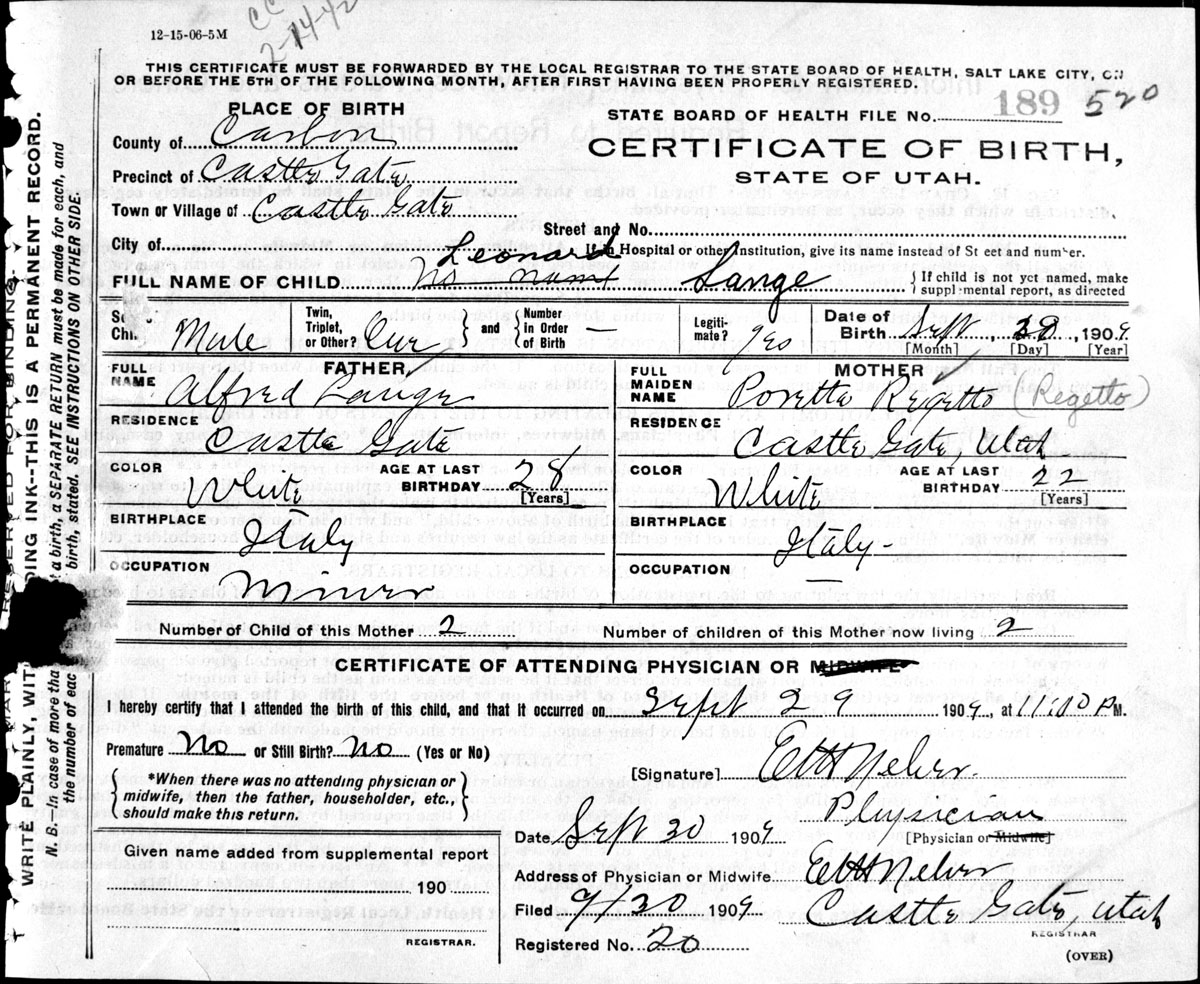 CC
2-14-42
12-15-06-5M
THIS CERTIFICATE MUST BE FORWARDED BY THE LOCAL REGISTRAR TO THE STATE BOARD OF HEALTH, SALT LAKE CITY, ON
OR BEFORE THE 5TH OF THE FOLLOWING MONTH, AFTER FIRST HAVING BEEN PROPERLY REGISTERED.
PLACE OF BIRTH
STATE BOARD OF HEALTH FILE No. 189 520
County of Carbon
CERTIFICATE OF BIRTH,
Precinct of Castle Gate
STATE OF UTAH.
Town or Village of Castle Gate
Street and No.
City of
If in Hospital or other institution, give its name instead of St eet and number.
Leonard
FULL NAME OF CHILD. No name Lange { If child is not yet named, make suppl mental report, as directed
Se Chi. Male Twin, Triplet, or Other? One } and { Number in Order of Birth — Legiti-mate? yes Date of Birth Sept, 1909.
[Month] [Day] [Year]
FATHER
MOTHER
FULL NAME Alfred Lange
FULL MAIDEN NAME Poretta Regetto (Regetto)
RESIDENCE Castle Gate
RESIDENCE Castle Gate Utah
COLOR White AGE AT LAST BIRTHDAY 28 [Years]
COLOR White AGE AT LAST BIRTHDAY 22 [Years]
BIRTHPLACE Italy
BIRTHPLACE Italy -
OCCUPATION Miner
OCCUPATION —
Number of Child of this Mother 2 Number of children of this Mother now living 2
CERTIFICATE OF ATTENDING PHYSICIAN OR MIDWIFE
I hereby certify that I attended the birth of this child, and that it occurred on Sept 29 1909, at 11:00 P M.
Premature No or Still Birth? No (Yes or No)
[Signature]
{ *When there was no attending physician or midwife, then the father, householder, etc., should make this return. }
Physician
Date Sept 30 1909 [Physician or Midwife]
Given name added from supplemental report
Address of Physician or Midwife
190
Filed 9/30 1909 Castle Gate, Utah
REGISTRAR
REGISTRAR.
Registered No. 20
(OVER)
RESERVED FOR BINDING
WRITE PLAINLY, WIT DING INK--THIS IS A PERMANENT RECORD.
N. B.—In case of more tha t a birth, a SEPARATE RETURN must be made for each, and
the number of eac birth, stated. SEE INSTRUCTIONS ON OTHER SIDE.